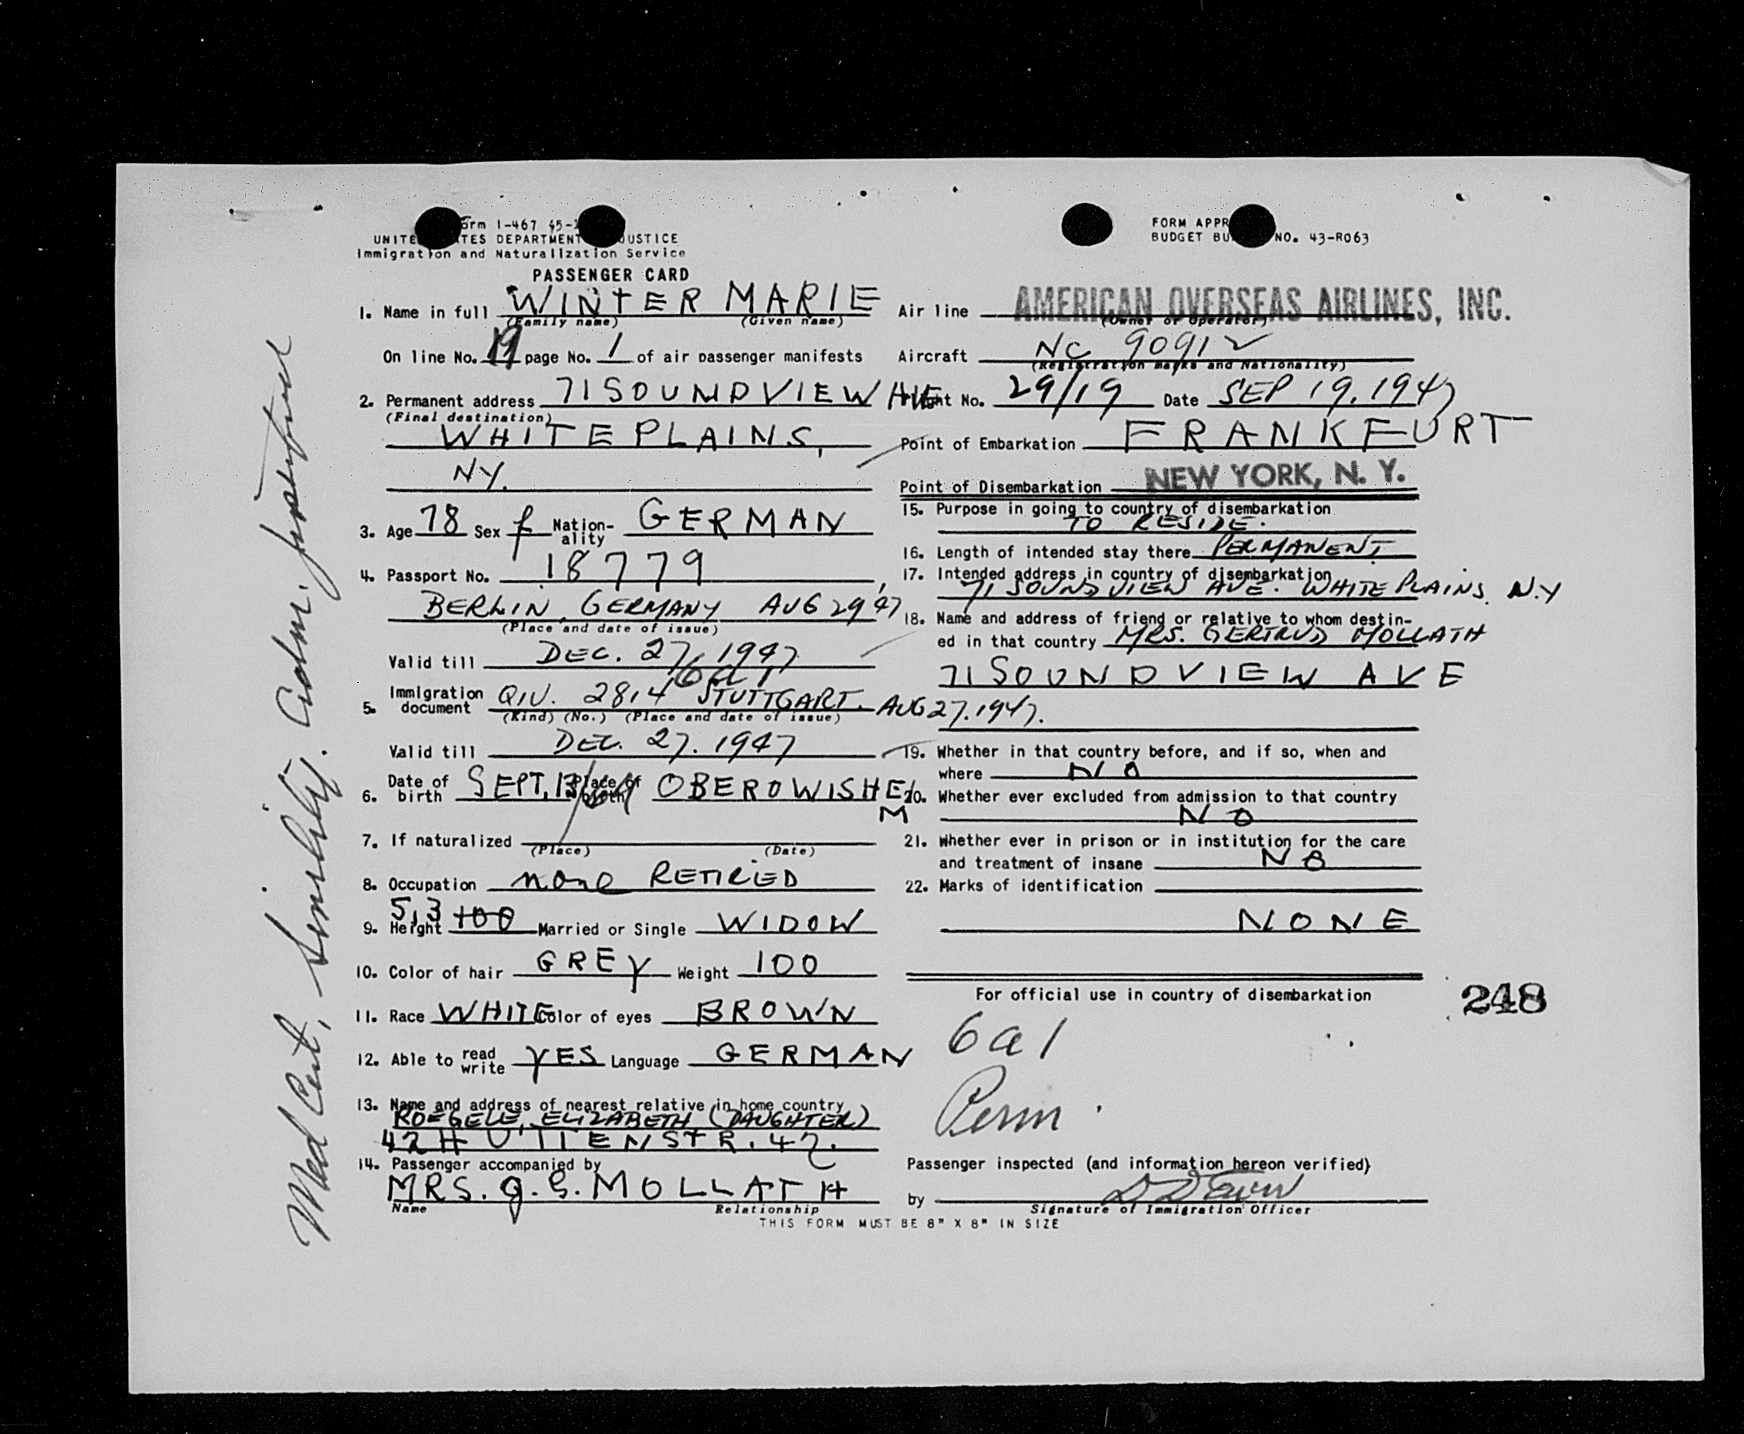 Form I-467
UNITED STATES DEPARTMENT JUSTICE
Immigration and Naturalization Service
PASSENGER CARD
1. Name in full WINTER MARIE
(Family name) (Given name)
On line No. 19 page No. 1 of air passenger manifests
2. Permanent address 71 SOUNDVIEW AVE
(Final destination)
WHITE PLAINS,
NY.
3. Age 78 Sex f Nationality GERMAN
4. Passport No. 18779
BERLIN, GERMANY AUG 29, 47
(Place and date of issue)
Valid till DEC. 27, 1947
6a1
5. Immigration document QIV. 2814 STUTTGART. AUG 27. 1947.
(Kind) (No.) (Place and date of issue)
Valid till DEC. 27. 1947
6. Date of birth SEPT. 13/ Place of birth OBEROWISHEIM
7. If naturalized
(Place) (Date)
8. Occupation none RETIRED
9. Height 5,3 100 Married or Single WIDOW
10. Color of hair GREY Weight 100
11. Race WHITE Color of eyes BROWN
12. Able to read write YES Language GERMAN
13. Name and address of nearest relative in home country
ROEGELE, ELIZABETH (DAUGHTER)
42 HUTTENSTR. 42.
14. Passenger accompanied by
MRS. G. G. MOLLATH
Name Relationship
THIS FORM MUST BE 8" X 8" IN SIZE
FORM APPR
BUDGET BU NO. 43-R063
Air line AMERICAN OVERSEAS AIRLINES, INC.
(Owner or Operator)
Aircraft NC 90912
(Registration marks and Nationality)
Flight No. 29/19 Date SEP 19, 1947
Point of Embarkation FRANKFURT
Point of Disembarkation NEW YORK, N. Y.
15. Purpose in going to country of disembarkation
TO RESIDE.
16. Length of intended stay there PERMANENT
17. Intended address in country of disembarkation
71 SOUND VIEW AVE. WHITE PLAINS. N.Y
18. Name and address of friend or relative to whom destin-
ed in that country MRS. GERTRUD MOLLATH
71 SOUNDVIEW AVE
19. Whether in that country before, and if so, when and
where NO
20. Whether ever excluded from admission to that country
NO
21. Whether ever in prison or in institution for the care
and treatment of insane NO
22. Marks of identification
NONE
For official use in country of disembarkation
248
6a1
Perm.
Passenger inspected (and information hereon verified)
by
Signature of Immigration Officer
Med Cert, Senility. Adm.